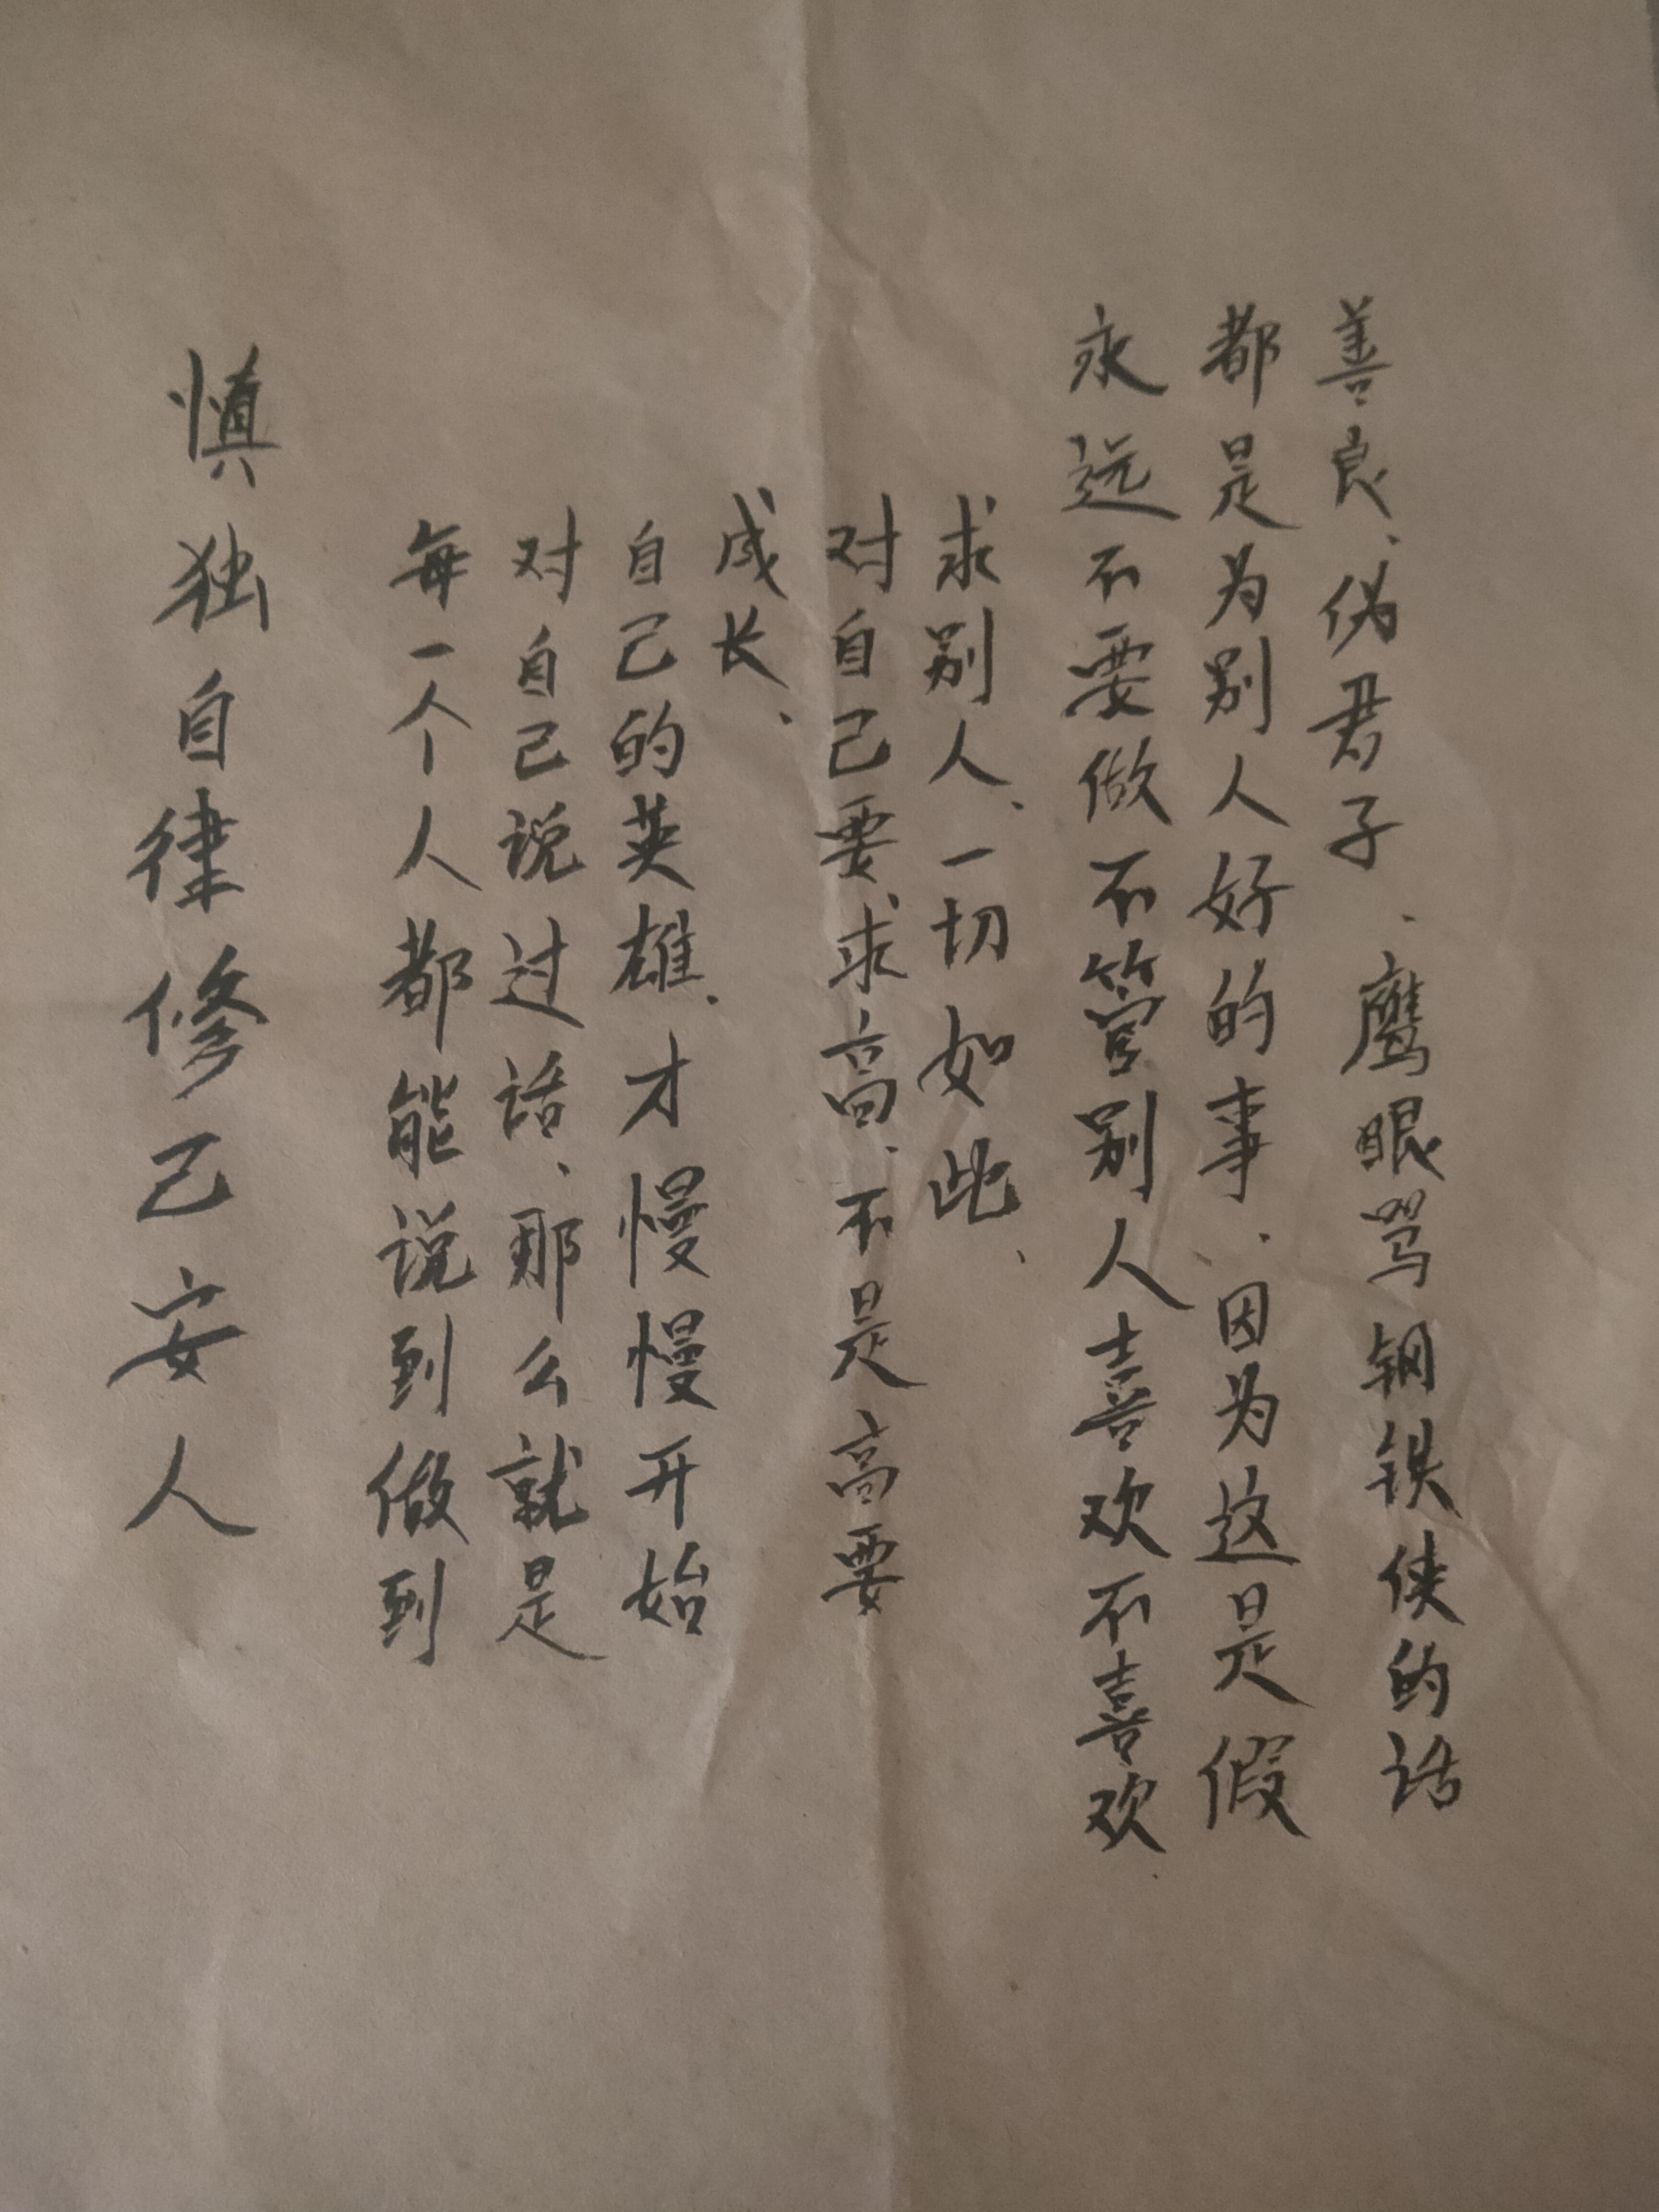 善良、伪君子、鹰眼骂钢铁侠的话
都是为别人好的事、因为这是假
永远不要做不管别人喜欢不喜欢
求别人、一切如此、
对自己要求高、不是高要
成长、
自己的英雄、才慢慢开始
对自己说过话、那么就是
每一个人都能说到做到
慎独自律修己安人